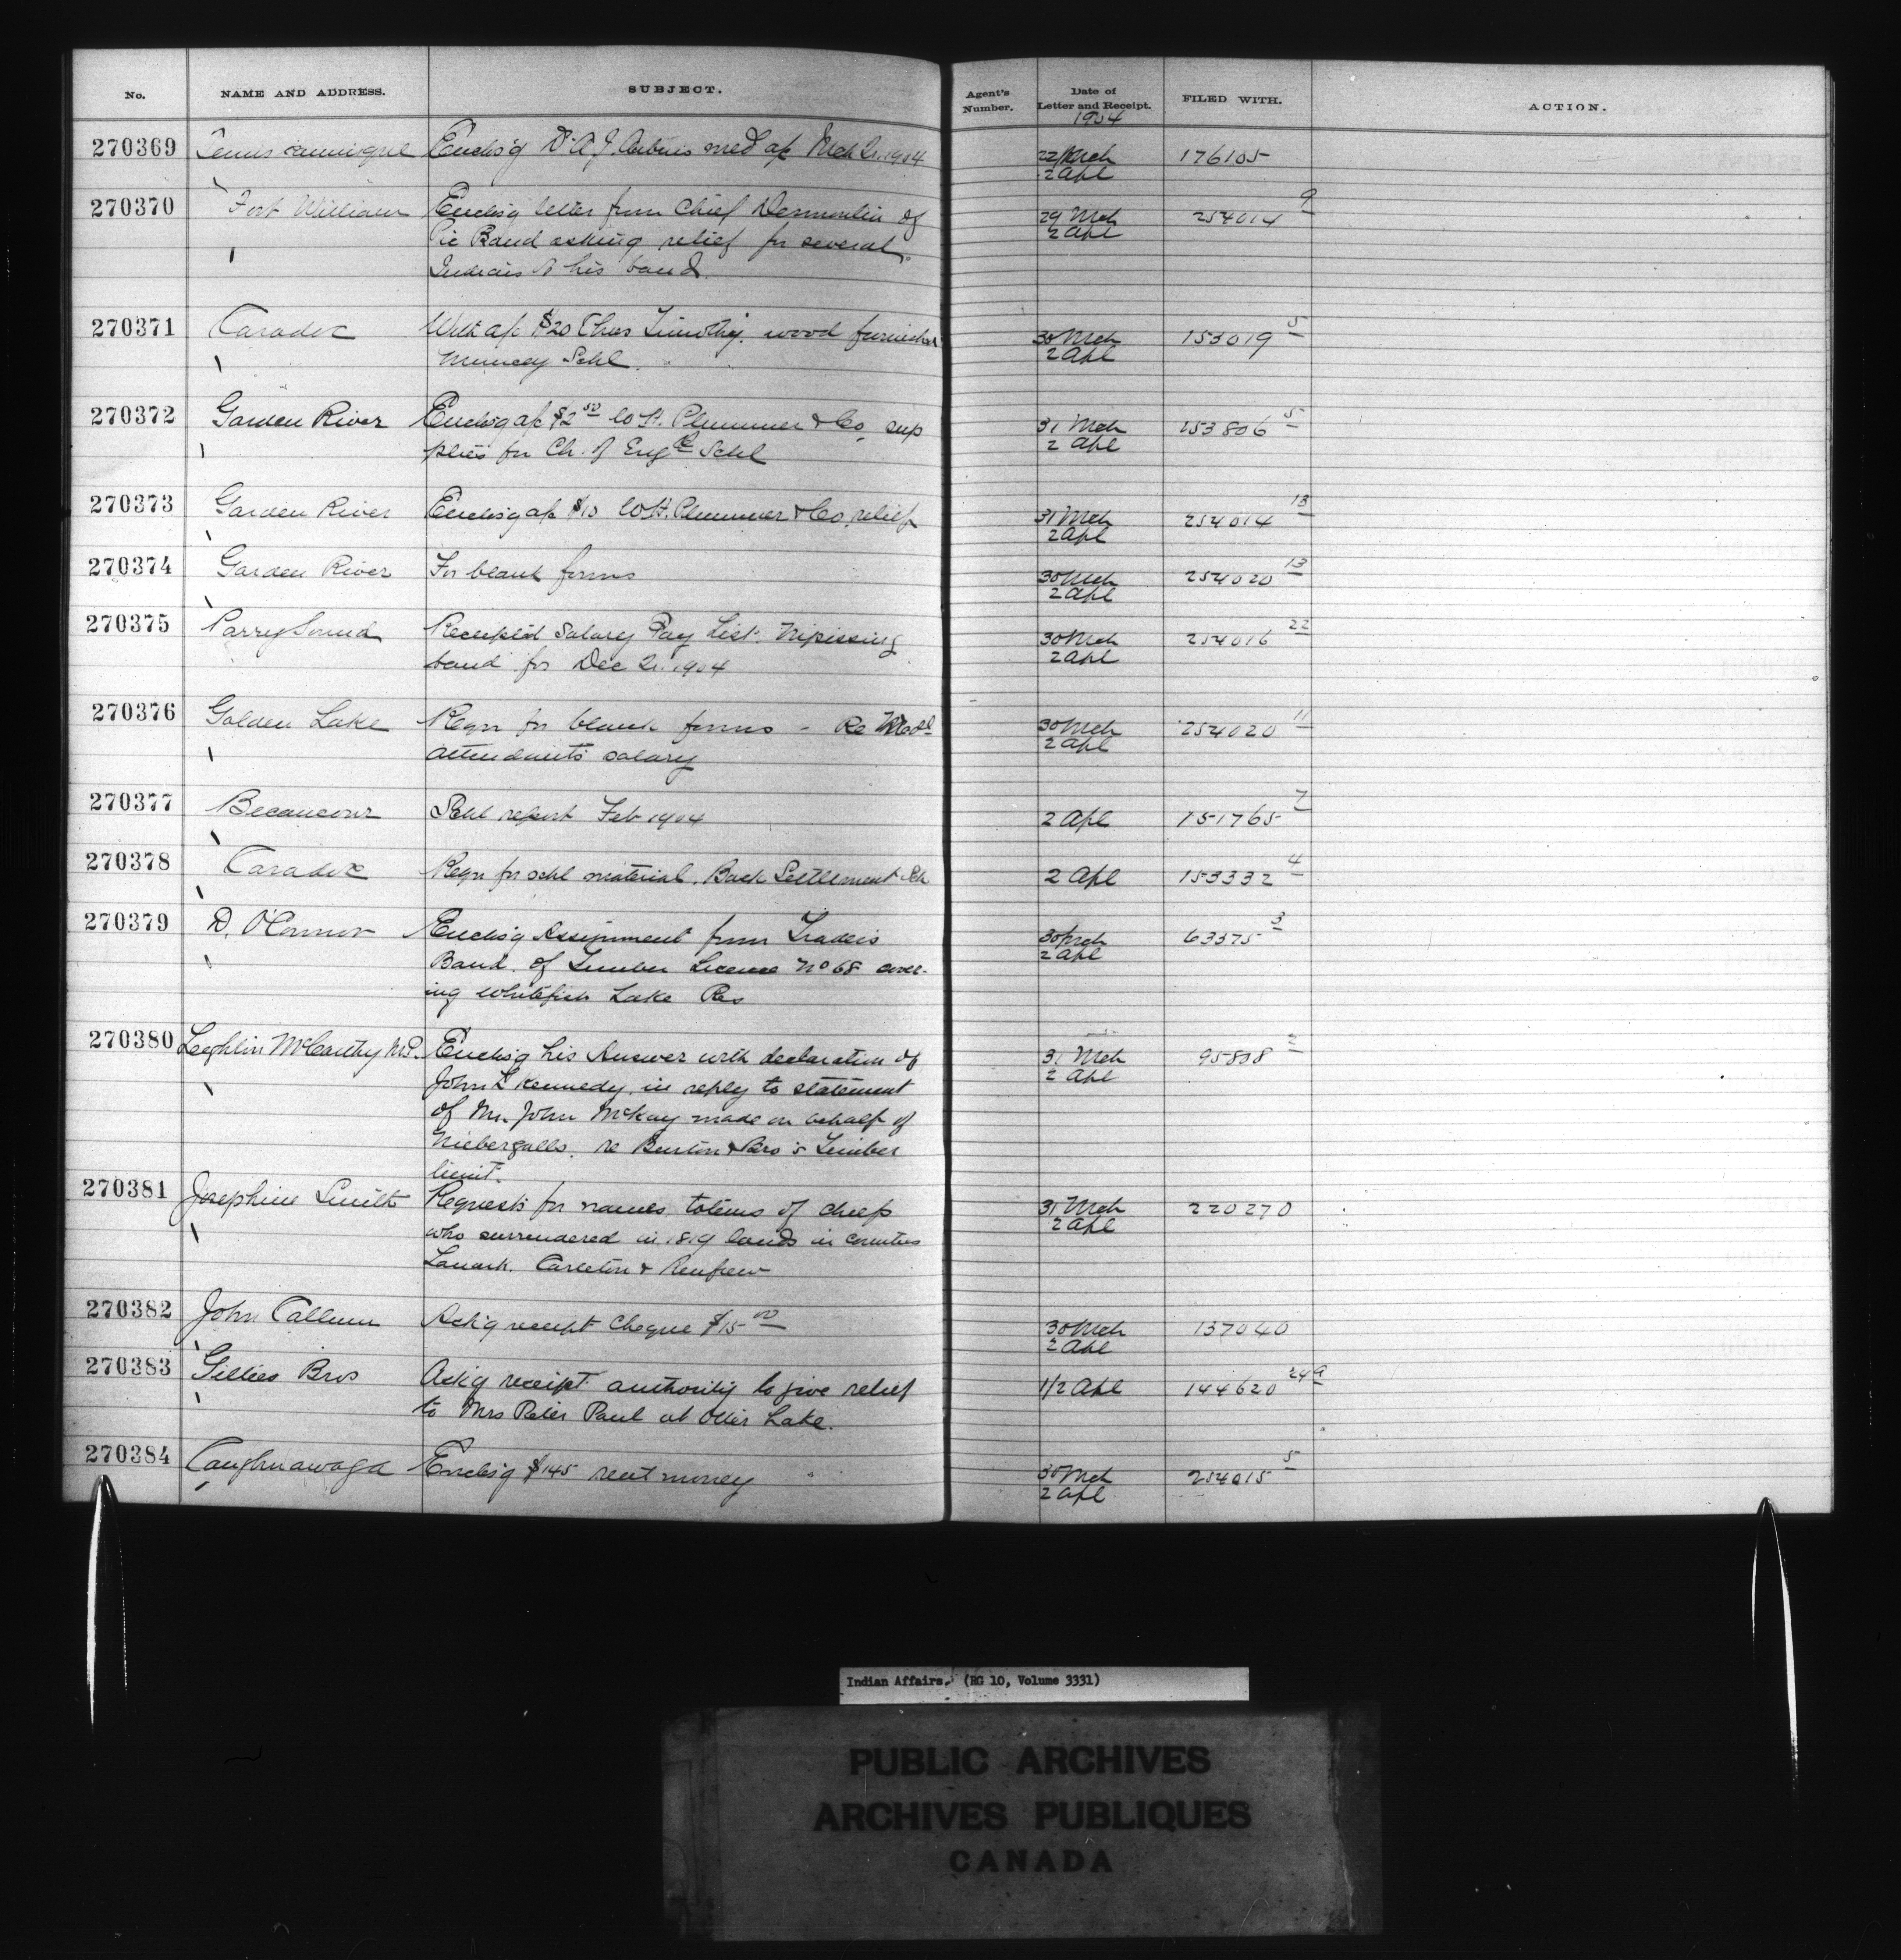 No. NAME AND ADDRESS. SUBJECT. Agent's Number. Date of Letter and Receipt. FILED WITH. ACTION.
1904
270369 Temiscamingue Enclos'g Dr A. J. med a/c Mch 1904 22/Mch 176105
2 Apl
270370 Fort William Enclos'g letter from Chief of 29 Mch 254014 9
Pic Band asking relief for several 2 Apl
Indians of his band.
270371 Caradoc With a/c $20 Timothy. wood furnished 30 Mch 153019 5
Muncey Schl. 2 Apl
270372 Garden River Enclos'g a/c $2.50 W. H. Plummer & Co, sup 31 Mch 153806 5
plies for Ch. of Eng'd Schl 2 Apl
270373 Garden River Enclos'g a/c $10 W. H. Plummer & Co, relief 31 Mch 254014 13
2 Apl
270374 Garden River For blank forms 30 Mch 254020 13
2 Apl
270375 Parry Sound Receipted Salary Pay List. Nipissing 30 Mch 254016 22
band for Dec 1904 2 Apl
270376 Golden Lake Reqn for blank forms - Re Med'l 30 Mch 254020 11
attendant's salary 2 Apl
270377 Becancour Schl report Feb 1904 2 Apl 151765 7
270378 Caradoc Reqn for schl material. Back Settlement Sch 2 Apl 153332 4
270379 D. O'Connor Enclos'g Assignment from Traders 30 Mch 63375 3
Bank. of Timber License No 68 cover- 2 Apl
ing Whitefish Lake Res
270380 Leighlin McCarthy M.P. Enclos'g his Answer with declaration of 31 Mch 95808 2
John L Kennedy, in reply to statement 2 Apl
of Mr. John McKay made on behalf of
Niebergalls. re Burton & Bro's Timber
limit.
270381 Josephine Smith Requests for names, totems of chiefs 31 Mch 220270
who surrendered in 1819 lands in counties 2 Apl
Lanark. Carleton & Renfrew
270382 John Callum Ack'g receipt Cheque $15.00 30 Mch 137040
2 Apl
270383 Gillies Bros Ack'g receipt authority to give relief 1/2 Apl 144620 249
to Mrs Peter Paul at Otter Lake.
270384 Caughnawaga Enclos'g $145 rent money 30 Mch 254015 5
2 Apl
Indian Affairs. (RG 10, Volume 3331)
PUBLIC ARCHIVES
ARCHIVES PUBLIQUES
CANADA